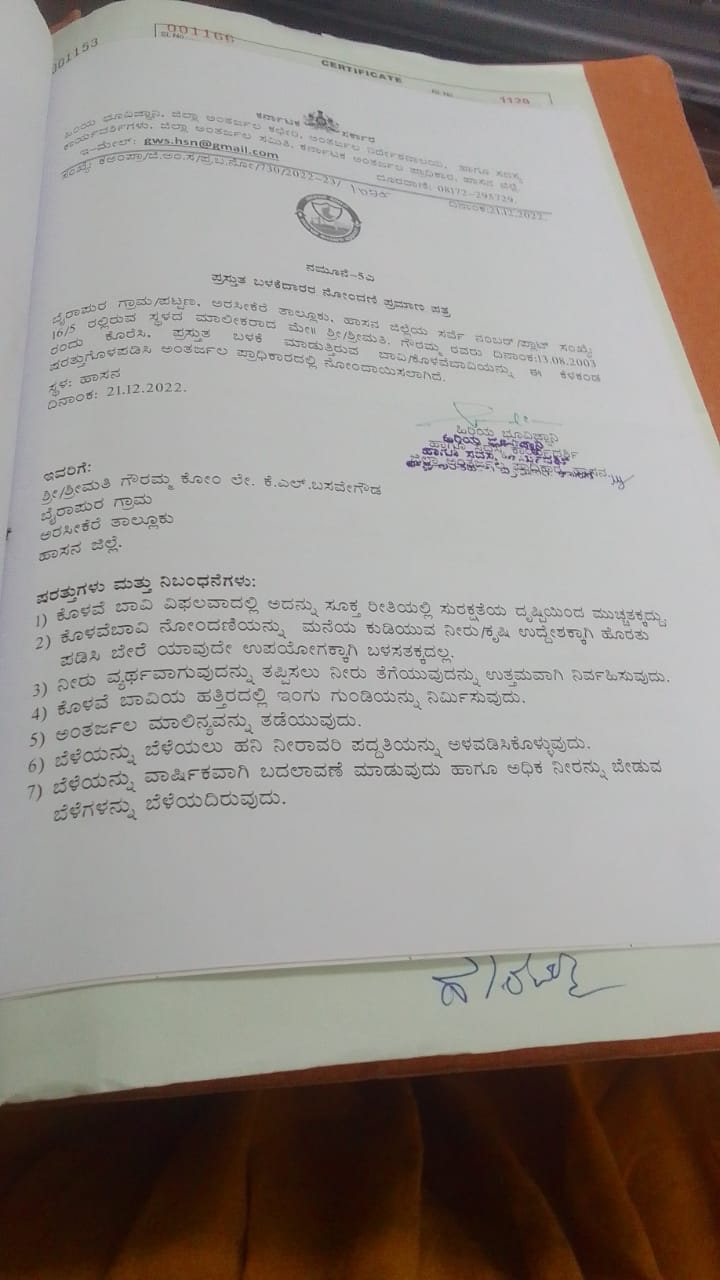 001153
001166
SL.No.
CERTIFICATE
1120
ಕರ್ನಾಟಕ ಸರ್ಕಾರ
ಹಿರಿಯ ಭೂವಿಜ್ಞಾನಿ, ಜಿಲ್ಲಾ ಅಂತರ್ಜಲ ಕಛೇರಿ, ಅಂತರ್ಜಲ ನಿರ್ದೇಶನಾಲಯ, ಹಾಗೂ ಸದಸ್ಯ
ಕಾರ್ಯದರ್ಶಿಗಳು, ಜಿಲ್ಲಾ ಅಂತರ್ಜಲ ಸಮಿತಿ, ಕರ್ನಾಟಕ ಅಂತರ್ಜಲ ಪ್ರಾಧಿಕಾರ, ಹಾಸನ ಜಿಲ್ಲೆ.
ಇ-ಮೇಲ್: gws.hsn@gmail.com ದೂರವಾಣಿ: 08172-295729.
ಸಂಖ್ಯೆ: ಕಅಂಪ್ರಾ/ಜಿ.ಅಂ.ಸ/ಪ್ರ.ಬ.ನೋ/730/2022-23/ ದಿನಾಂಕ:21.12.2022.
ನಮೂನೆ-5ಎ
ಪ್ರಸ್ತುತ ಬಳಕೆದಾರರ ನೋಂದಣಿ ಪ್ರಮಾಣ ಪತ್ರ
ಬೈರಾಪುರ ಗ್ರಾಮ/ಪಟ್ಟಣ, ಅರಸೀಕೆರೆ ತಾಲ್ಲೂಕು, ಹಾಸನ ಜಿಲ್ಲೆಯ ಸರ್ವೆ ನಂಬರ್/ಪ್ಲಾಟ್ ಸಂಖ್ಯೆ
16/5 ರಲ್ಲಿರುವ ಸ್ಥಳದ ಮಾಲೀಕರಾದ ಮೇ॥ ಶ್ರೀ/ಶ್ರೀಮತಿ. ಗೌರಮ್ಮ ರವರು ದಿನಾಂಕ:13.08.2003
ರಂದು ಕೊರೆಸಿ, ಪ್ರಸ್ತುತ ಬಳಕೆ ಮಾಡುತ್ತಿರುವ ಬಾವಿ/ಕೊಳವೆಬಾವಿಯನ್ನು ಈ ಕೆಳಕಂಡ
ಷರತ್ತುಗೊಳಪಡಿಸಿ ಅಂತರ್ಜಲ ಪ್ರಾಧಿಕಾರದಲ್ಲಿ ನೋಂದಾಯಿಸಲಾಗಿದೆ.
ಸ್ಥಳ: ಹಾಸನ
ದಿನಾಂಕ: 21.12.2022.
ಹಿರಿಯ ಭೂವಿಜ್ಞಾನಿ
ಇವರಿಗೆ:
ಶ್ರೀ/ಶ್ರೀಮತಿ ಗೌರಮ್ಮ ಕೋಂ ಲೇ. ಕೆ.ಎಲ್.ಬಸವೇಗೌಡ
ಬೈರಾಪುರ ಗ್ರಾಮ
ಅರಸೀಕೆರೆ ತಾಲ್ಲೂಕು
ಹಾಸನ ಜಿಲ್ಲೆ.
ಷರತ್ತುಗಳು ಮತ್ತು ನಿಬಂಧನೆಗಳು:
1) ಕೊಳವೆ ಬಾವಿ ವಿಫಲವಾದಲ್ಲಿ ಅದನ್ನು ಸೂಕ್ತ ರೀತಿಯಲ್ಲಿ ಸುರಕ್ಷತೆಯ ದೃಷ್ಟಿಯಿಂದ ಮುಚ್ಚತಕ್ಕದ್ದು.
2) ಕೊಳವೆಬಾವಿ ನೋಂದಣಿಯನ್ನು ಮನೆಯ ಕುಡಿಯುವ ನೀರು/ಕೃಷಿ ಉದ್ದೇಶಕ್ಕಾಗಿ ಹೊರತು
ಪಡಿಸಿ ಬೇರೆ ಯಾವುದೇ ಉಪಯೋಗಕ್ಕಾಗಿ ಬಳಸತಕ್ಕದಲ್ಲ.
3) ನೀರು ವ್ಯರ್ಥವಾಗುವುದನ್ನು ತಪ್ಪಿಸಲು ನೀರು ತೆಗೆಯುವುದನ್ನು ಉತ್ತಮವಾಗಿ ನಿರ್ವಹಿಸುವುದು.
4) ಕೊಳವೆ ಬಾವಿಯ ಹತ್ತಿರದಲ್ಲಿ ಇಂಗು ಗುಂಡಿಯನ್ನು ನಿರ್ಮಿಸುವುದು.
5) ಅಂತರ್ಜಲ ಮಾಲಿನ್ಯವನ್ನು ತಡೆಯುವುದು.
6) ಬೆಳೆಯನ್ನು ಬೆಳೆಯಲು ಹನಿ ನೀರಾವರಿ ಪದ್ದತಿಯನ್ನು ಅಳವಡಿಸಿಕೊಳ್ಳುವುದು.
7) ಬೆಳೆಯನ್ನು ವಾರ್ಷಿಕವಾಗಿ ಬದಲಾವಣೆ ಮಾಡುವುದು ಹಾಗೂ ಅಧಿಕ ನೀರನ್ನು ಬೇಡುವ
ಬೆಳೆಗಳನ್ನು ಬೆಳೆಯದಿರುವುದು.